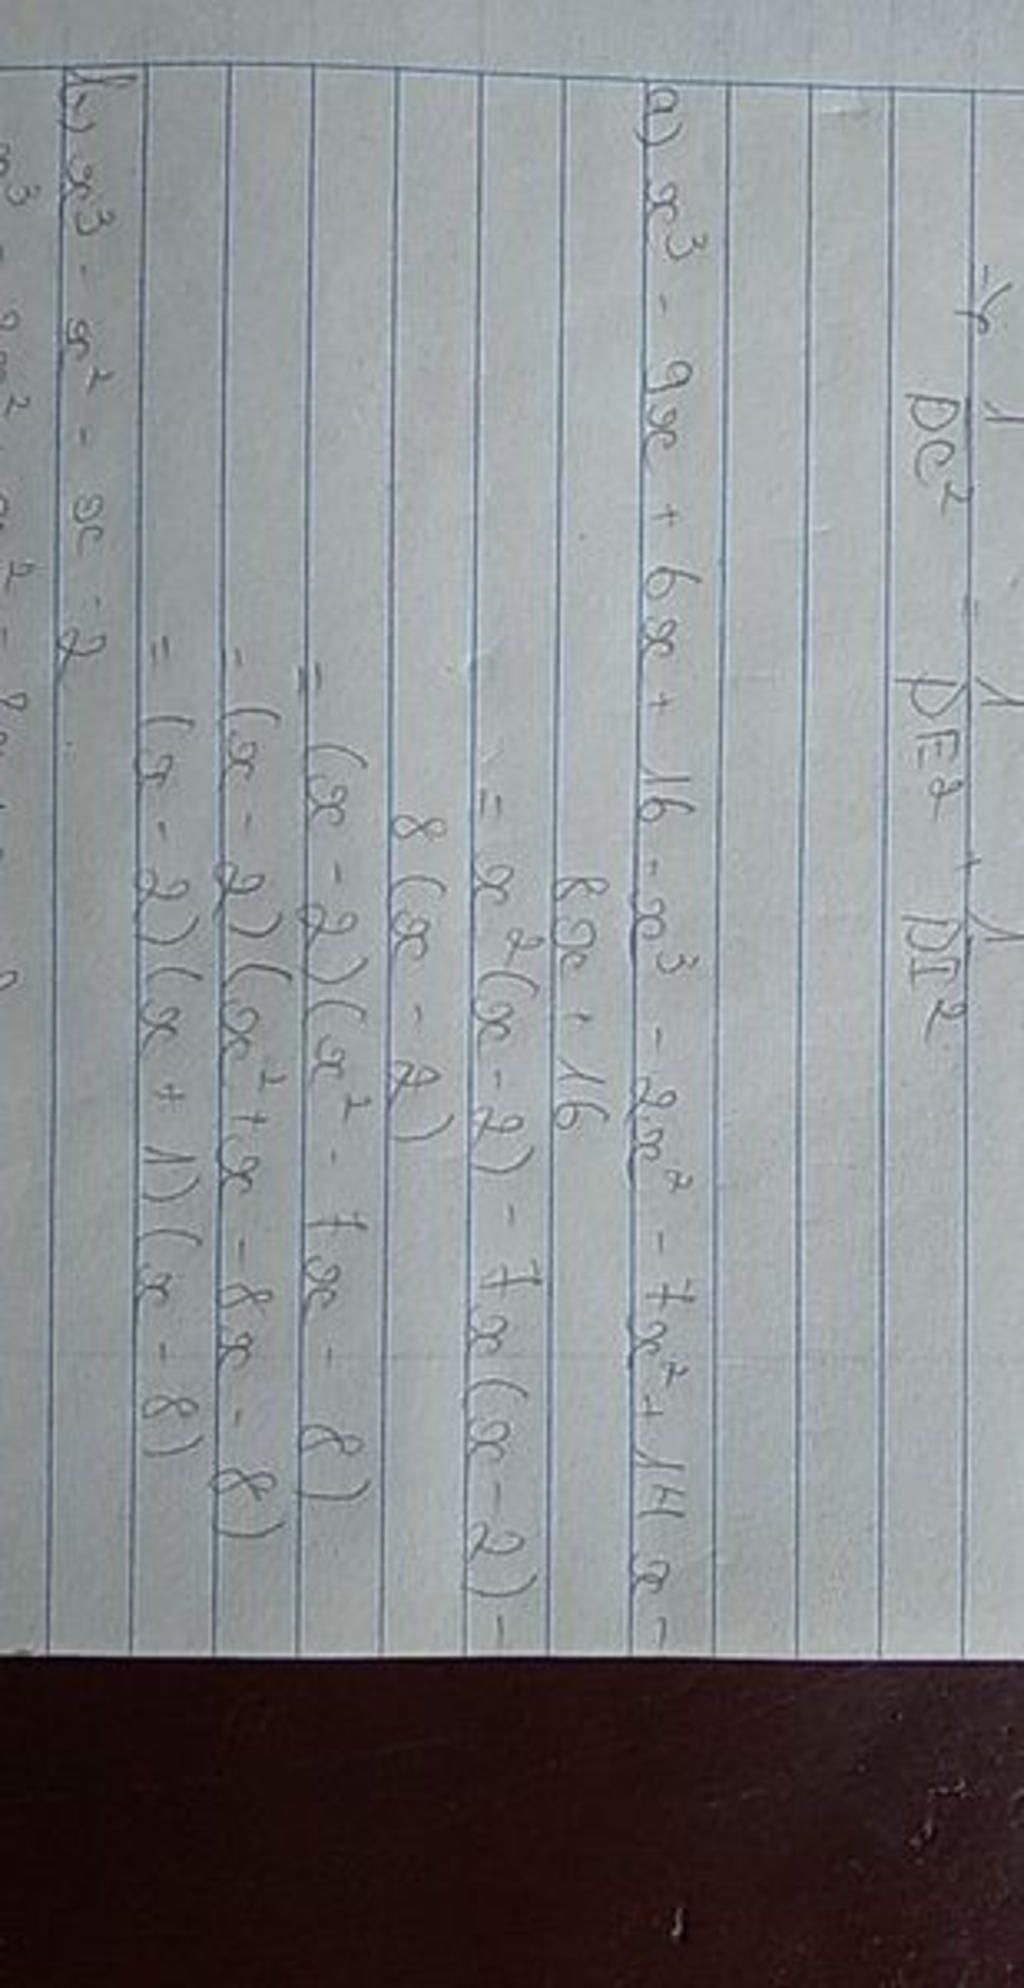 => 1/DC² = 1/DE² + 1/DI²
a) x³ - 9x + 6x + 16 = x³ - 2x² - 7x² + 14x -
8x + 16
= x²(x - 2) - 7x(x - 2) -
8(x - 2)
= (x - 2)(x² - 7x - 8)
= (x - 2)(x² + x - 8x - 8)
= (x - 2)(x + 1)(x - 8)
b) x³ - x² - x - 2